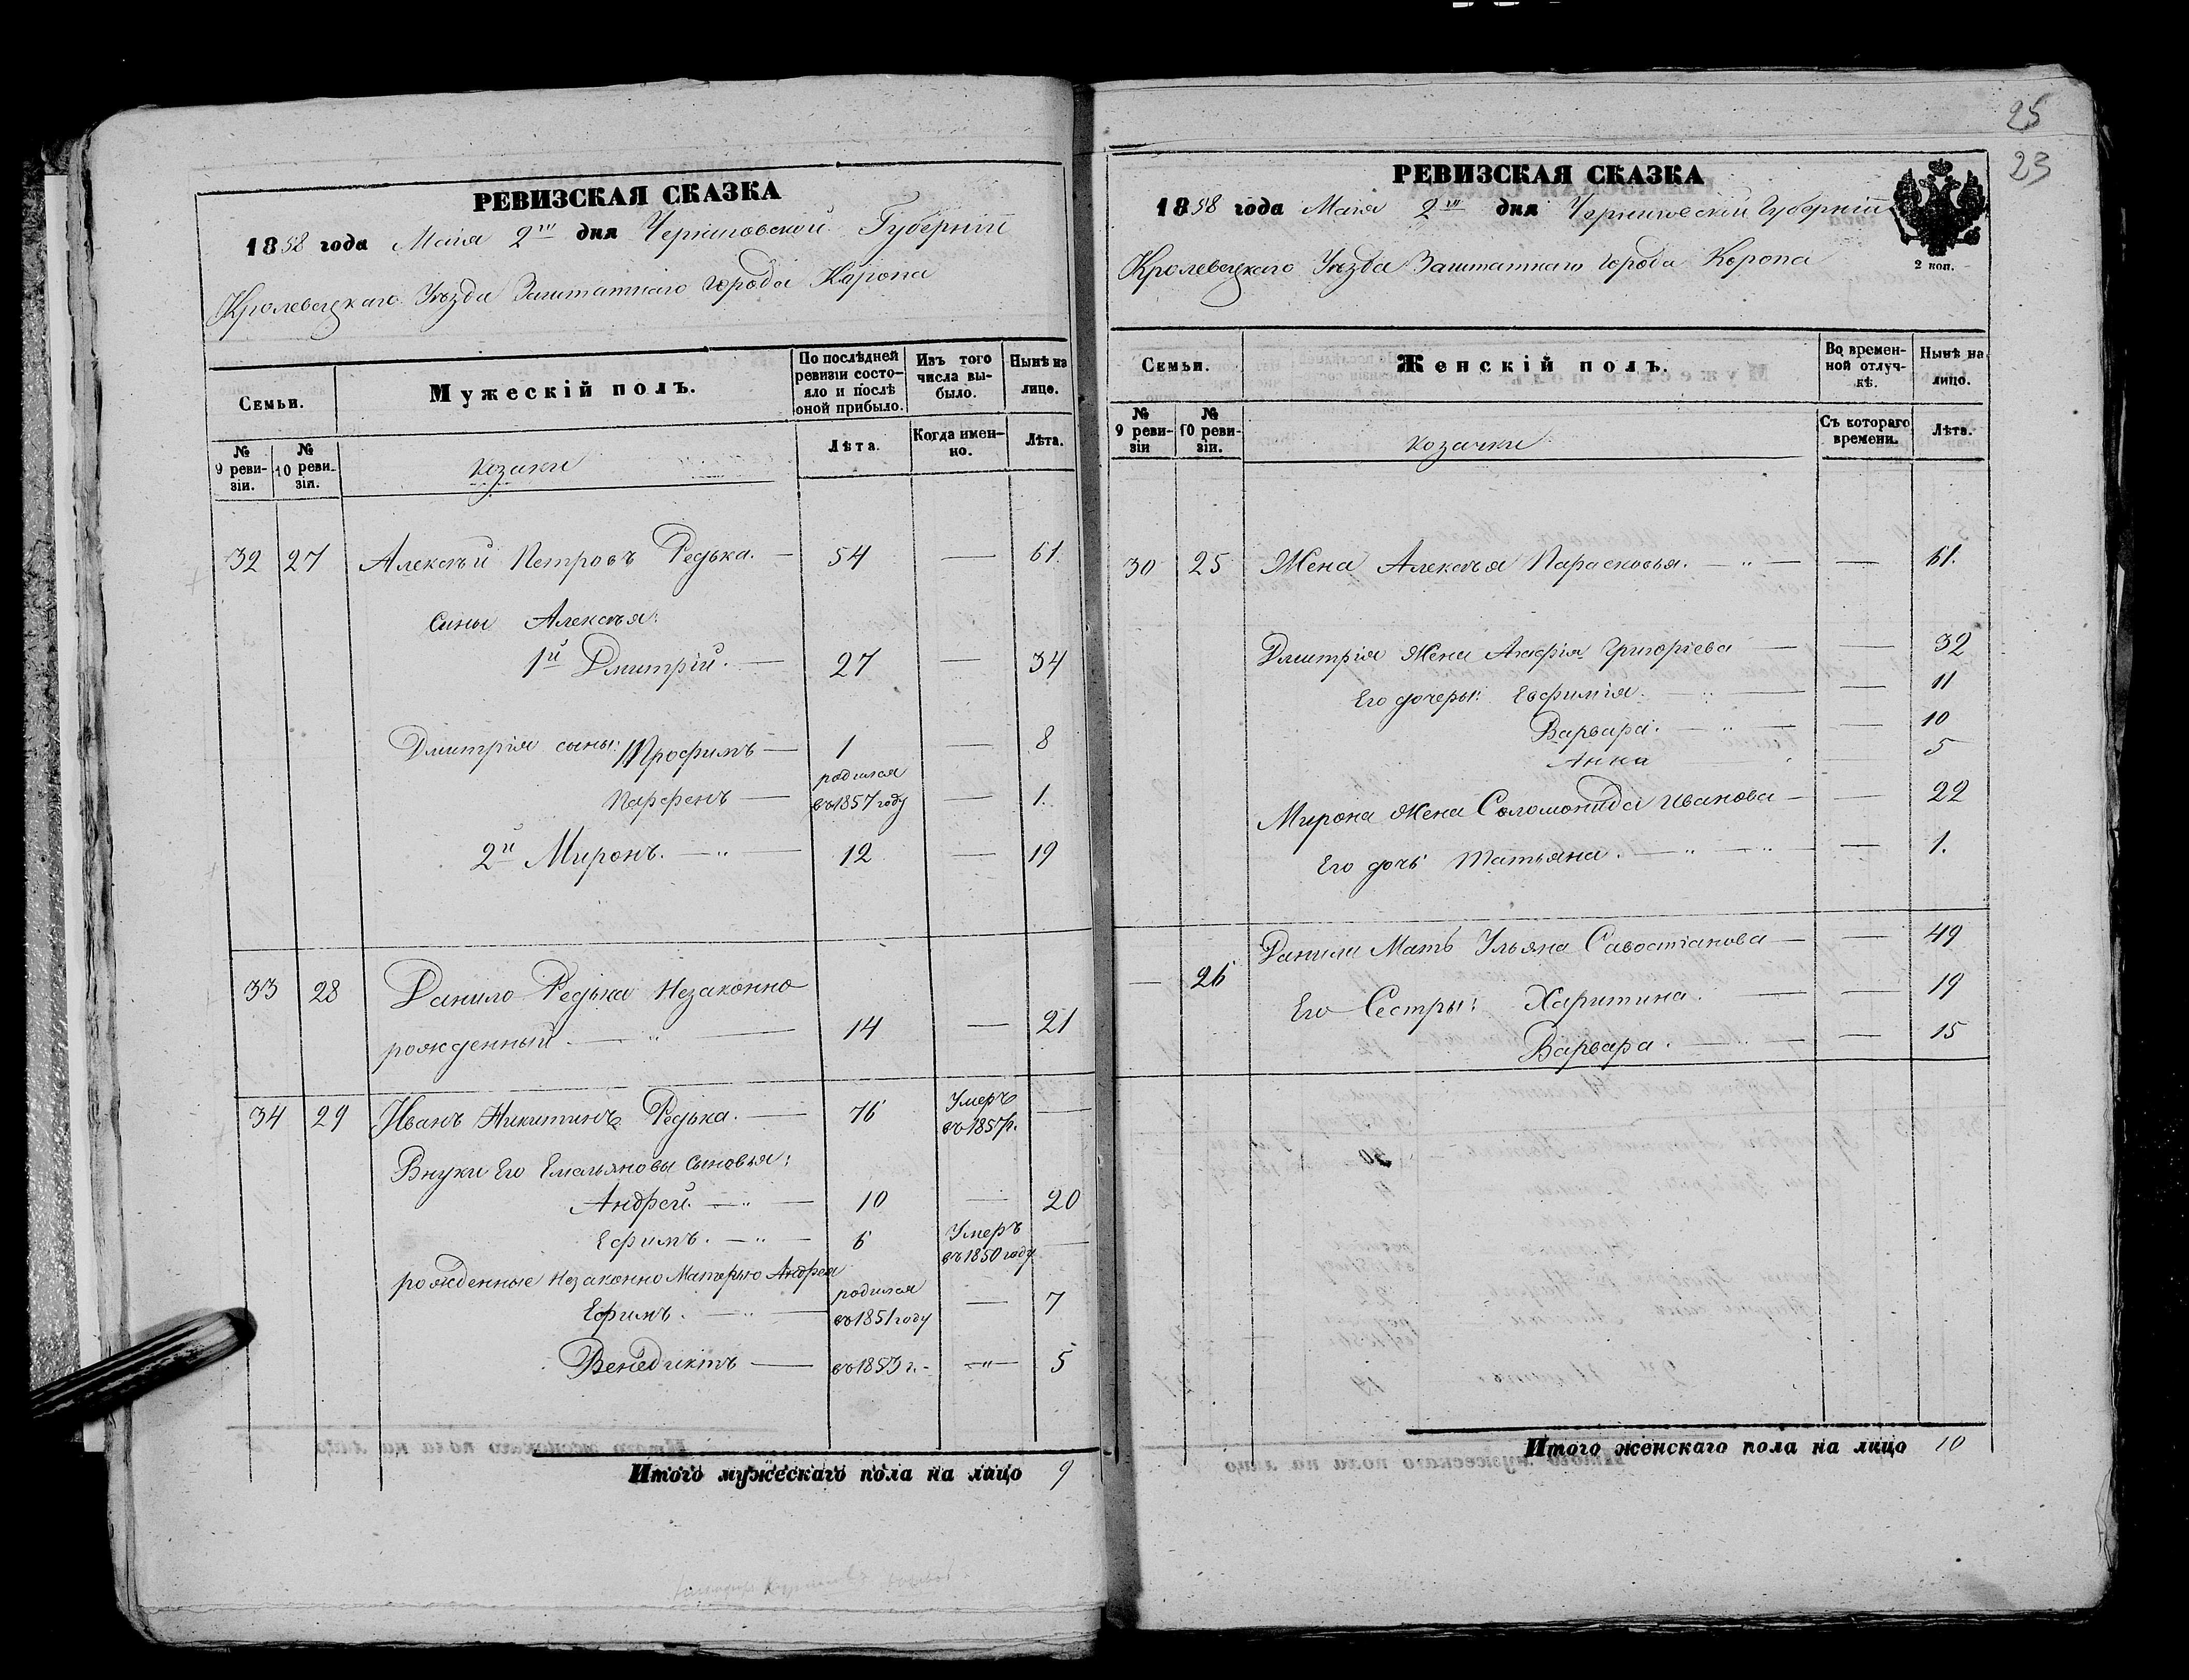 25
23
РЕВИЗСКАЯ СКАЗКА
1858 года Маія 2го дня Черниговской Губерніи
Кролевецкаго Уѣзда Заштатнаго города Коропа
Семьи.
Мужескій полъ.
По послѣдней ревизіи состояло и послѣ оной прибыло.
Изъ того числа выбыло.
Нынѣ на лице.
№ 9 ревизіи.
№ 10 ревизіи.
козаки
Лѣта.
Когда именно.
Лѣта.
32 27 Алексѣй Петровъ Редька. — 54 — 61.
Сины Алексѣя:
1й Дмитрій. — 27 — 34
Дмитрія сыны: Трофимъ — 1 — 8
Парфенъ — родился въ 1857 году — 1.
2й Миронъ. — „ — 12 — 19
33 28 Данило Редька Незаконно
рожденный. — „ — 14 — 21
34 29 Иванъ Никитинъ Редька. — 76 Умеръ въ 1857 г. —
Внуки Его Емельяновы Сыновья:
Андрей. — „ — 10 — 20
Ефимъ. — „ — 6 Умеръ въ 1850 году —
рожденные Незаконно Матерью Андрея
Ефимъ. — „ — родился въ 1851 году — 7
Венедиктъ — въ 1853 г. — „ — 5
Итого мужескаго пола на лицо 9
РЕВИЗСКАЯ СКАЗКА
1858 года Маія 2го дня Черниговскій Губерніи
Кролевецкаго Уѣзда Заштатнаго города Коропа
2 коп.
Семьи.
Женскій полъ.
Во временной отлучкѣ.
Нынѣ на лицо.
№ 9 ревизіи
№ 10 ревизіи.
козачки
Съ котораго времени.
Лѣта.
30 25 Жена Алексѣя Парасковья. — „ — — 61.
Дмитрія Жена Агафія Григоріева — — 32
Его дочеры: Евфимія. — „ — — 11
Варвара. — „ — — 10
Анна 5
Мирона Жена Соломонида Иванова — — 22
Его дочь Татьяна. — „ — „ — — 1.
— 26 Данили Мать Ульяна Савостіанова — — 49
Его Сестры: Харитина. — — 19
Варвара. — „ — — 15
Итого женскаго пола на лицо 10